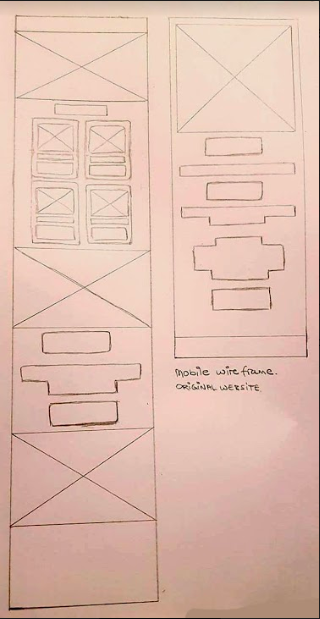 mobile wireframe.
ORIGINAL WEBSITE